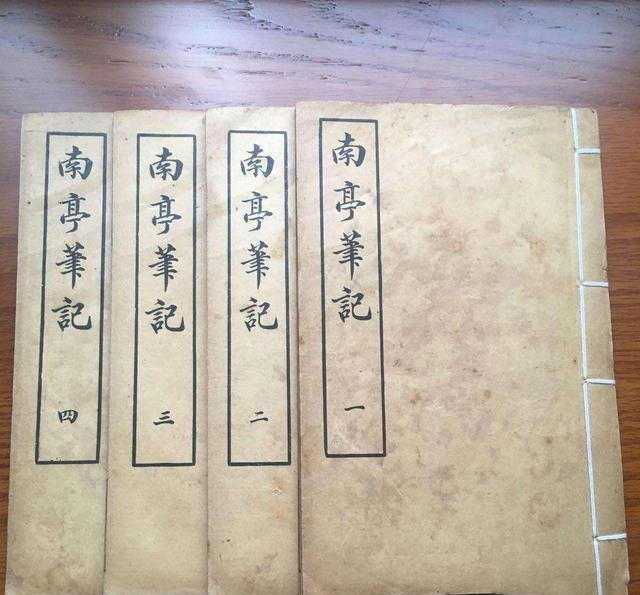 南亭筆記
一
南亭筆記
二
南亭筆記
三
南亭筆記
四